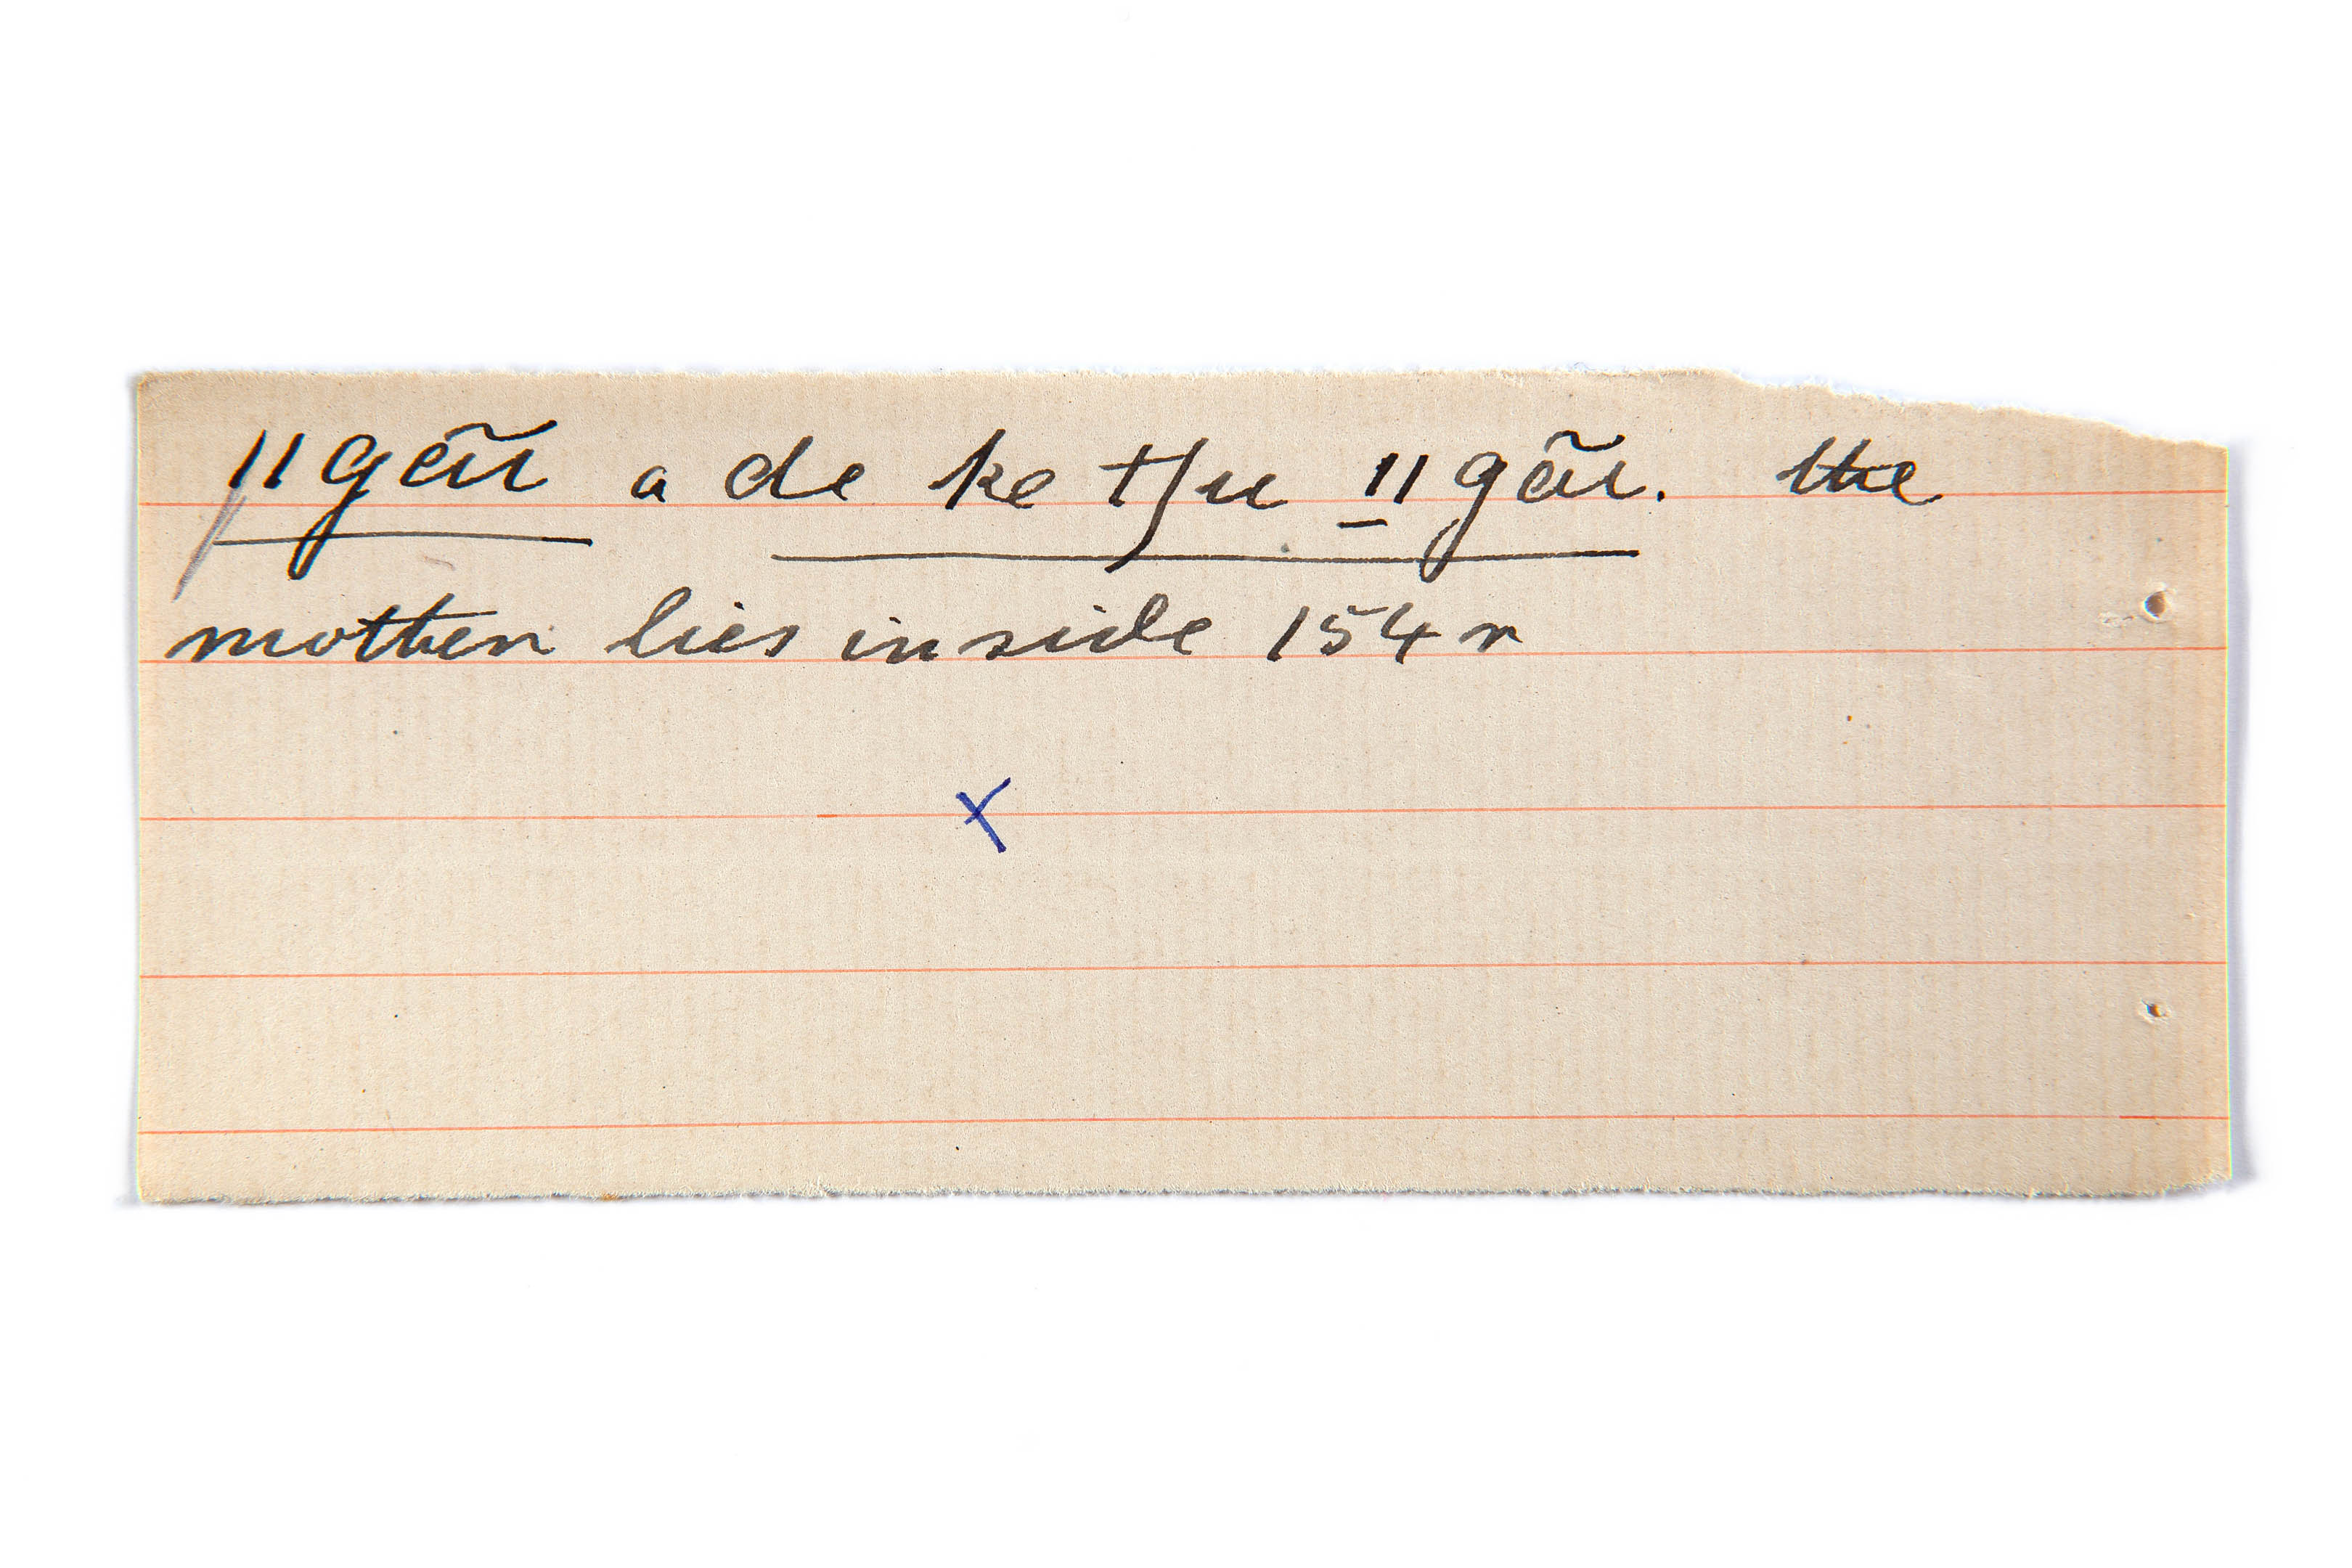 ǁgãı a de ke tʃu ǁgãı. the
mother lies inside 154 r
x